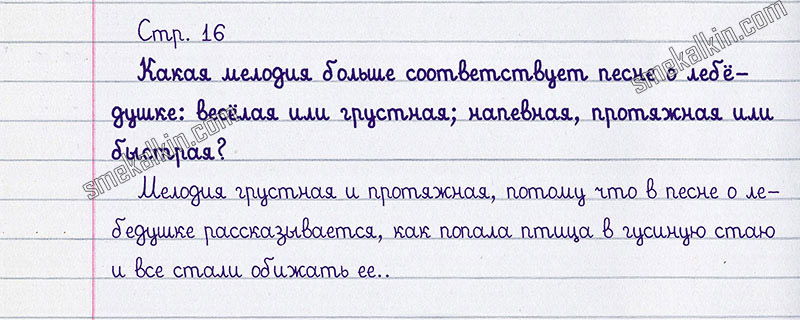 Стр. 16
Какая мелодия больше соответствует песне о лебё-
душке: весёлая или грустная; напевная, протяжная или
быстрая?
Мелодия грустная и протяжная, потому что в песне о ле-
бедушке рассказывается, как попала птица в гусиную стаю
и все стали обижать ее..
smekalkin.com
smekalkin.com
smekalkin.com